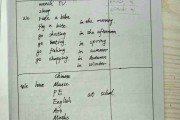 watch TV
We ride a bike
fly a kite in the morning
go skating in the afternoon
go boating in spring
go fishing in summer
go shopping in Autumn
in winter
Chinese
We have Music
PE at school
English
Art
Maths